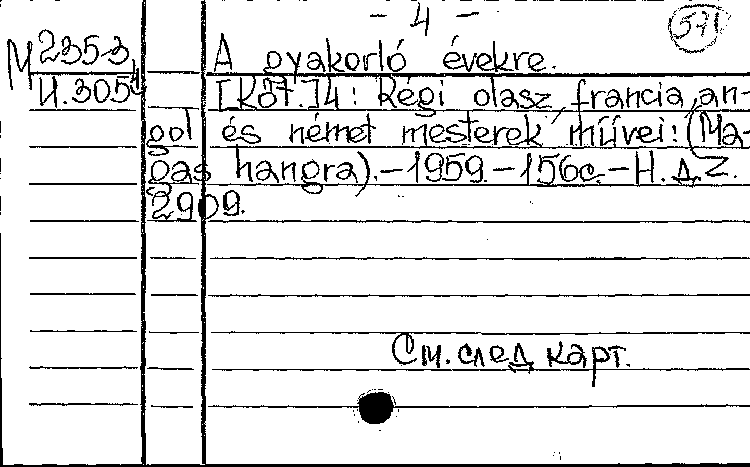 - 4 -
571
M 235-3
И.305
A gyakorló évekre.
[Köt.]4: Régi olasz, francia, an-
gol és német mesterek művei: (Ma-
gas hangra).-1959.-156с.-Н.д.Z.
2909.
См. след карт.